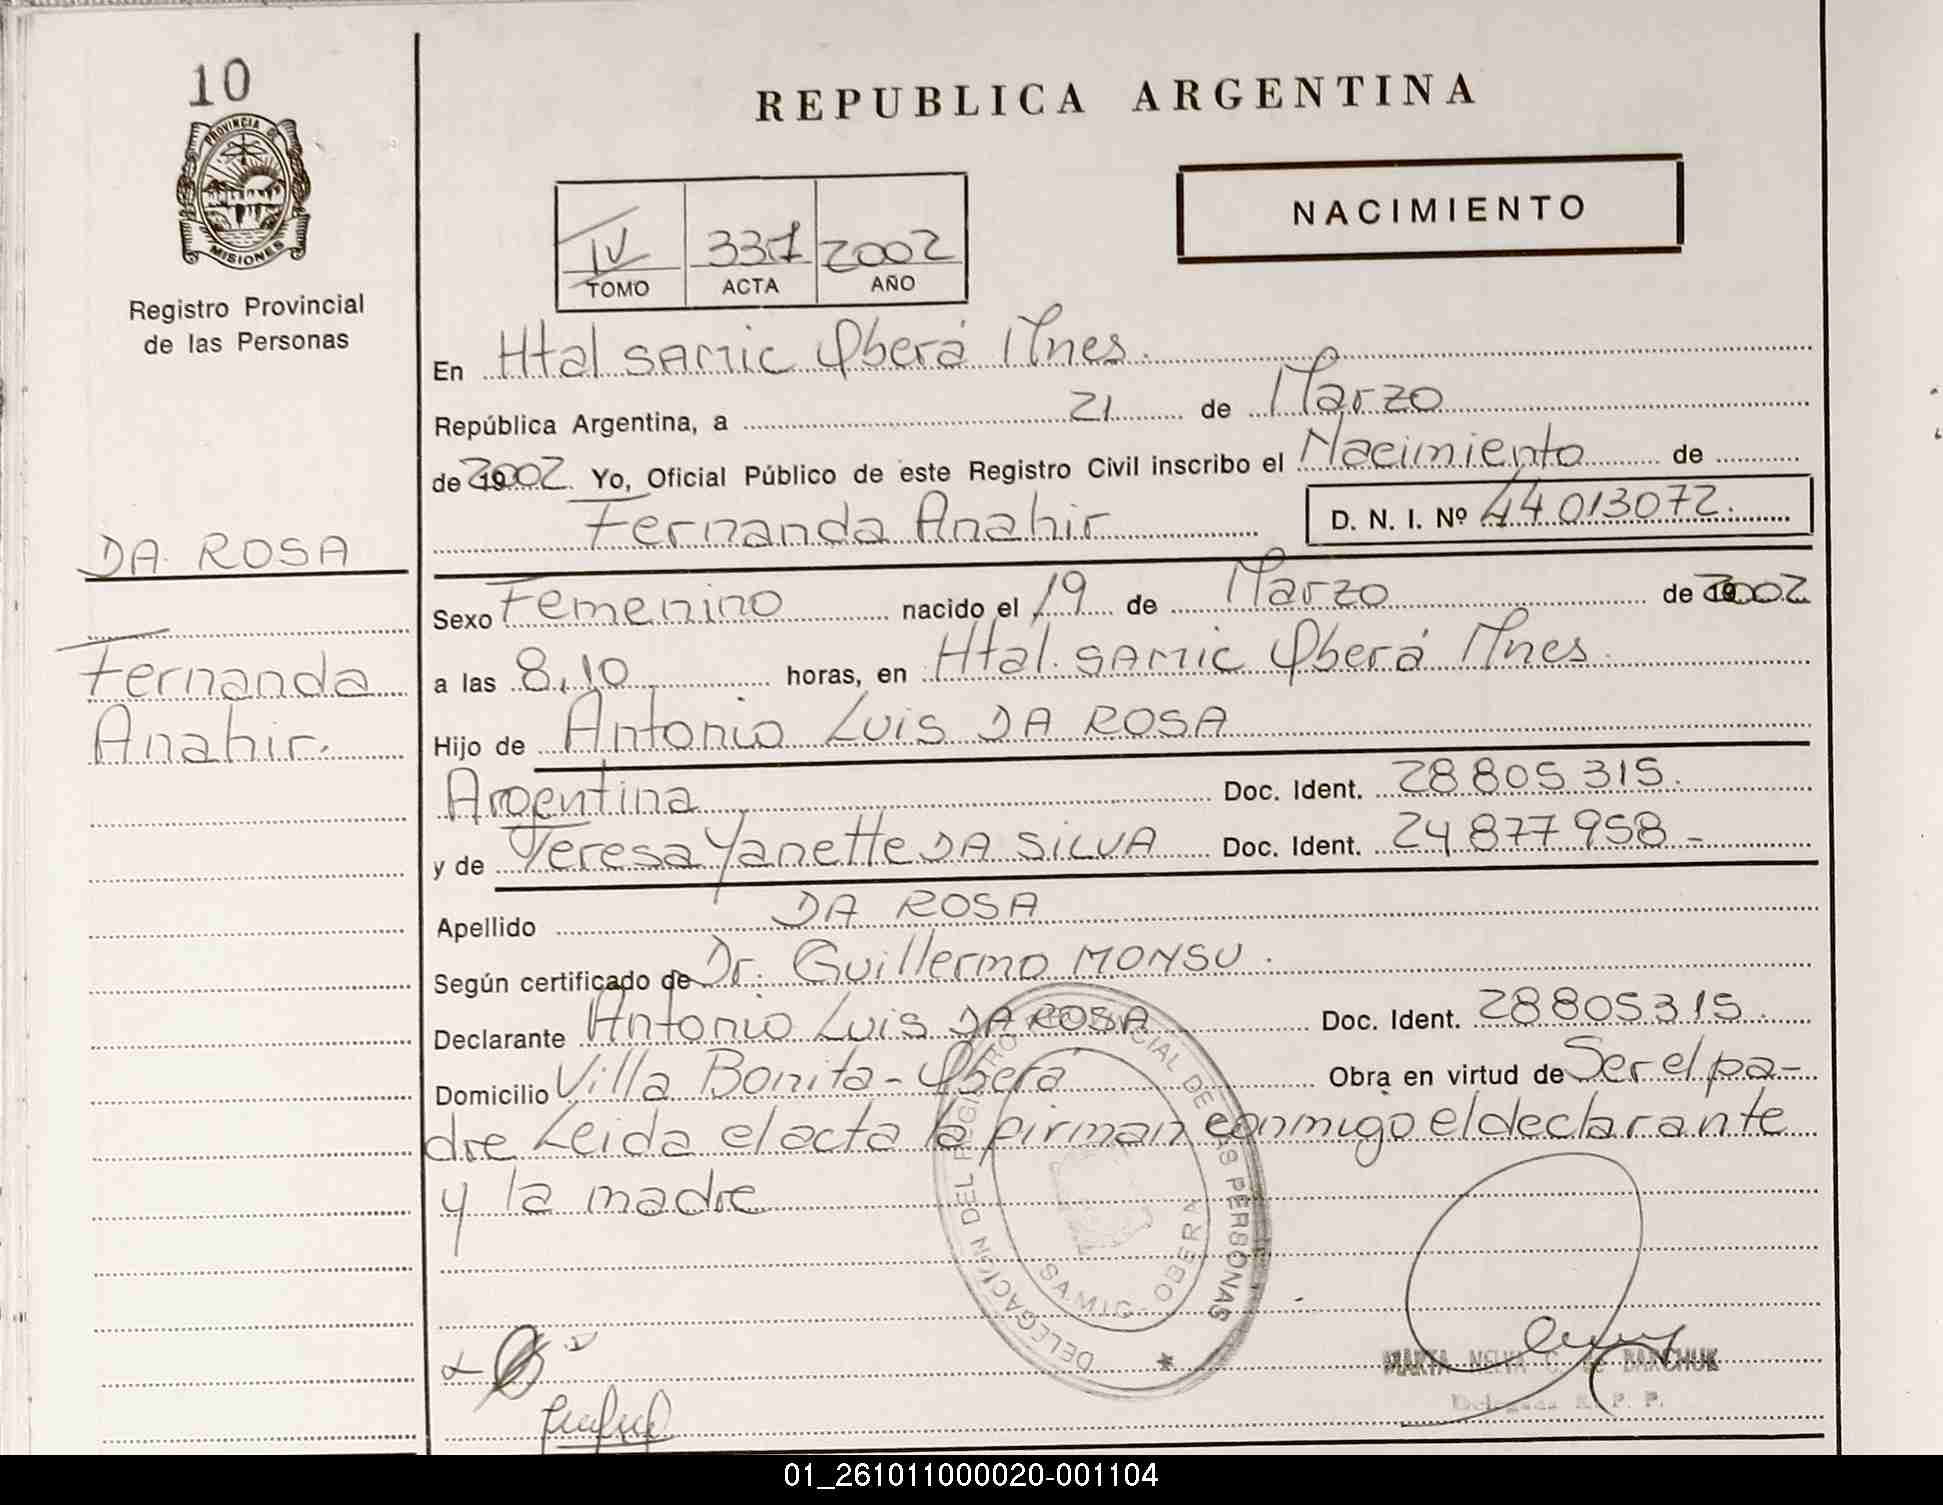 10
PROVINCIA DE
MISIONES
Registro Provincial
de las Personas
DA ROSA
Fernanda
Anahir.
REPUBLICA ARGENTINA
NACIMIENTO
IV 331 2002
TOMO ACTA AÑO
En Htal SAMIC Oberá Mnes.
República Argentina, a 21 de Marzo
de 2002. Yo, Oficial Público de este Registro Civil inscribo el Nacimiento de
Fernanda Anahir D. N. I. Nº 44 013072.
Sexo Femenino nacido el 19 de Marzo de 2002
a las 8,10 horas, en Htal. SAMIC Oberá Mnes.
Hijo de Antonio Luis DA ROSA
Argentina Doc. Ident. 28 805 315.
y de Teresa Yanette DA SILVA Doc. Ident. 24 877 958 -
Apellido DA ROSA
Según certificado de Dr. Guillermo MONSU.
Declarante Antonio Luis DA ROSA Doc. Ident. 28805315.
Domicilio Villa Bonita - Oberá Obra en virtud de Ser el pa-
dre Leida el acta la firman conmigo el declarante
y la madre
DELEGACION DEL REGISTRO PROVINCIAL DE LAS PERSONAS
SAMIC - OBERA
MARTA NELVA C. de BARCHUK
Delegada R. P. P.
01_261011000020-001104